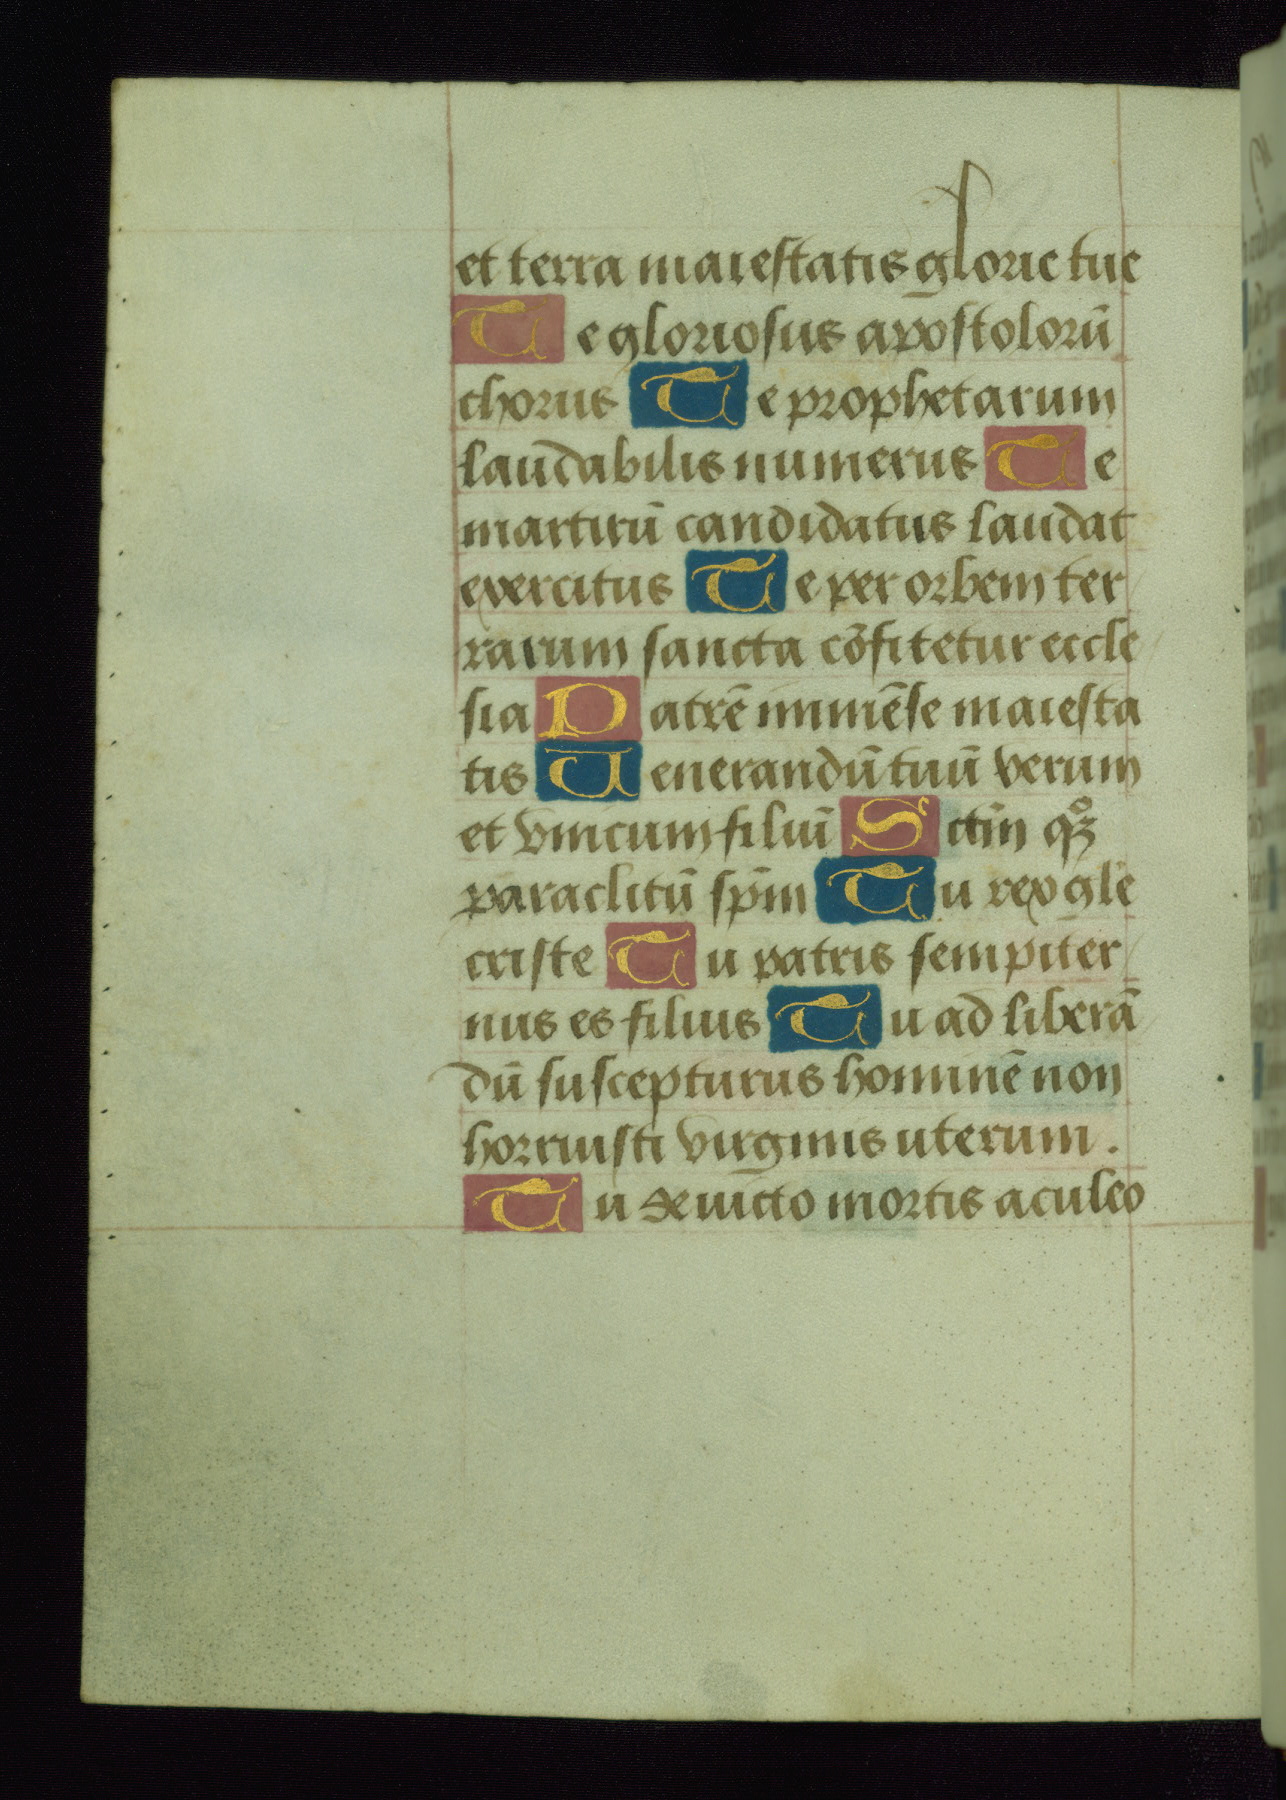 et terra maiestatis glorie tue
Te gloriosus apostolorū
chorus Te prophetarum
laudabilis numerus Te
martirū candidatus laudat
exercitus Te per orbem ter
rarum sancta cōfitetur eccle
sia Patrē immēse maiesta
tis Uenerandū tuū verum
et vnicum filiū Sctm̄ qꝫ
paraclitū spm̄ Tu rex glīe
criste Tu patris sempiter
nus es filius Tu ad liberā
dū suscepturus hominē non
horruisti virginis uterum.
Tu deuicto mortis aculeo